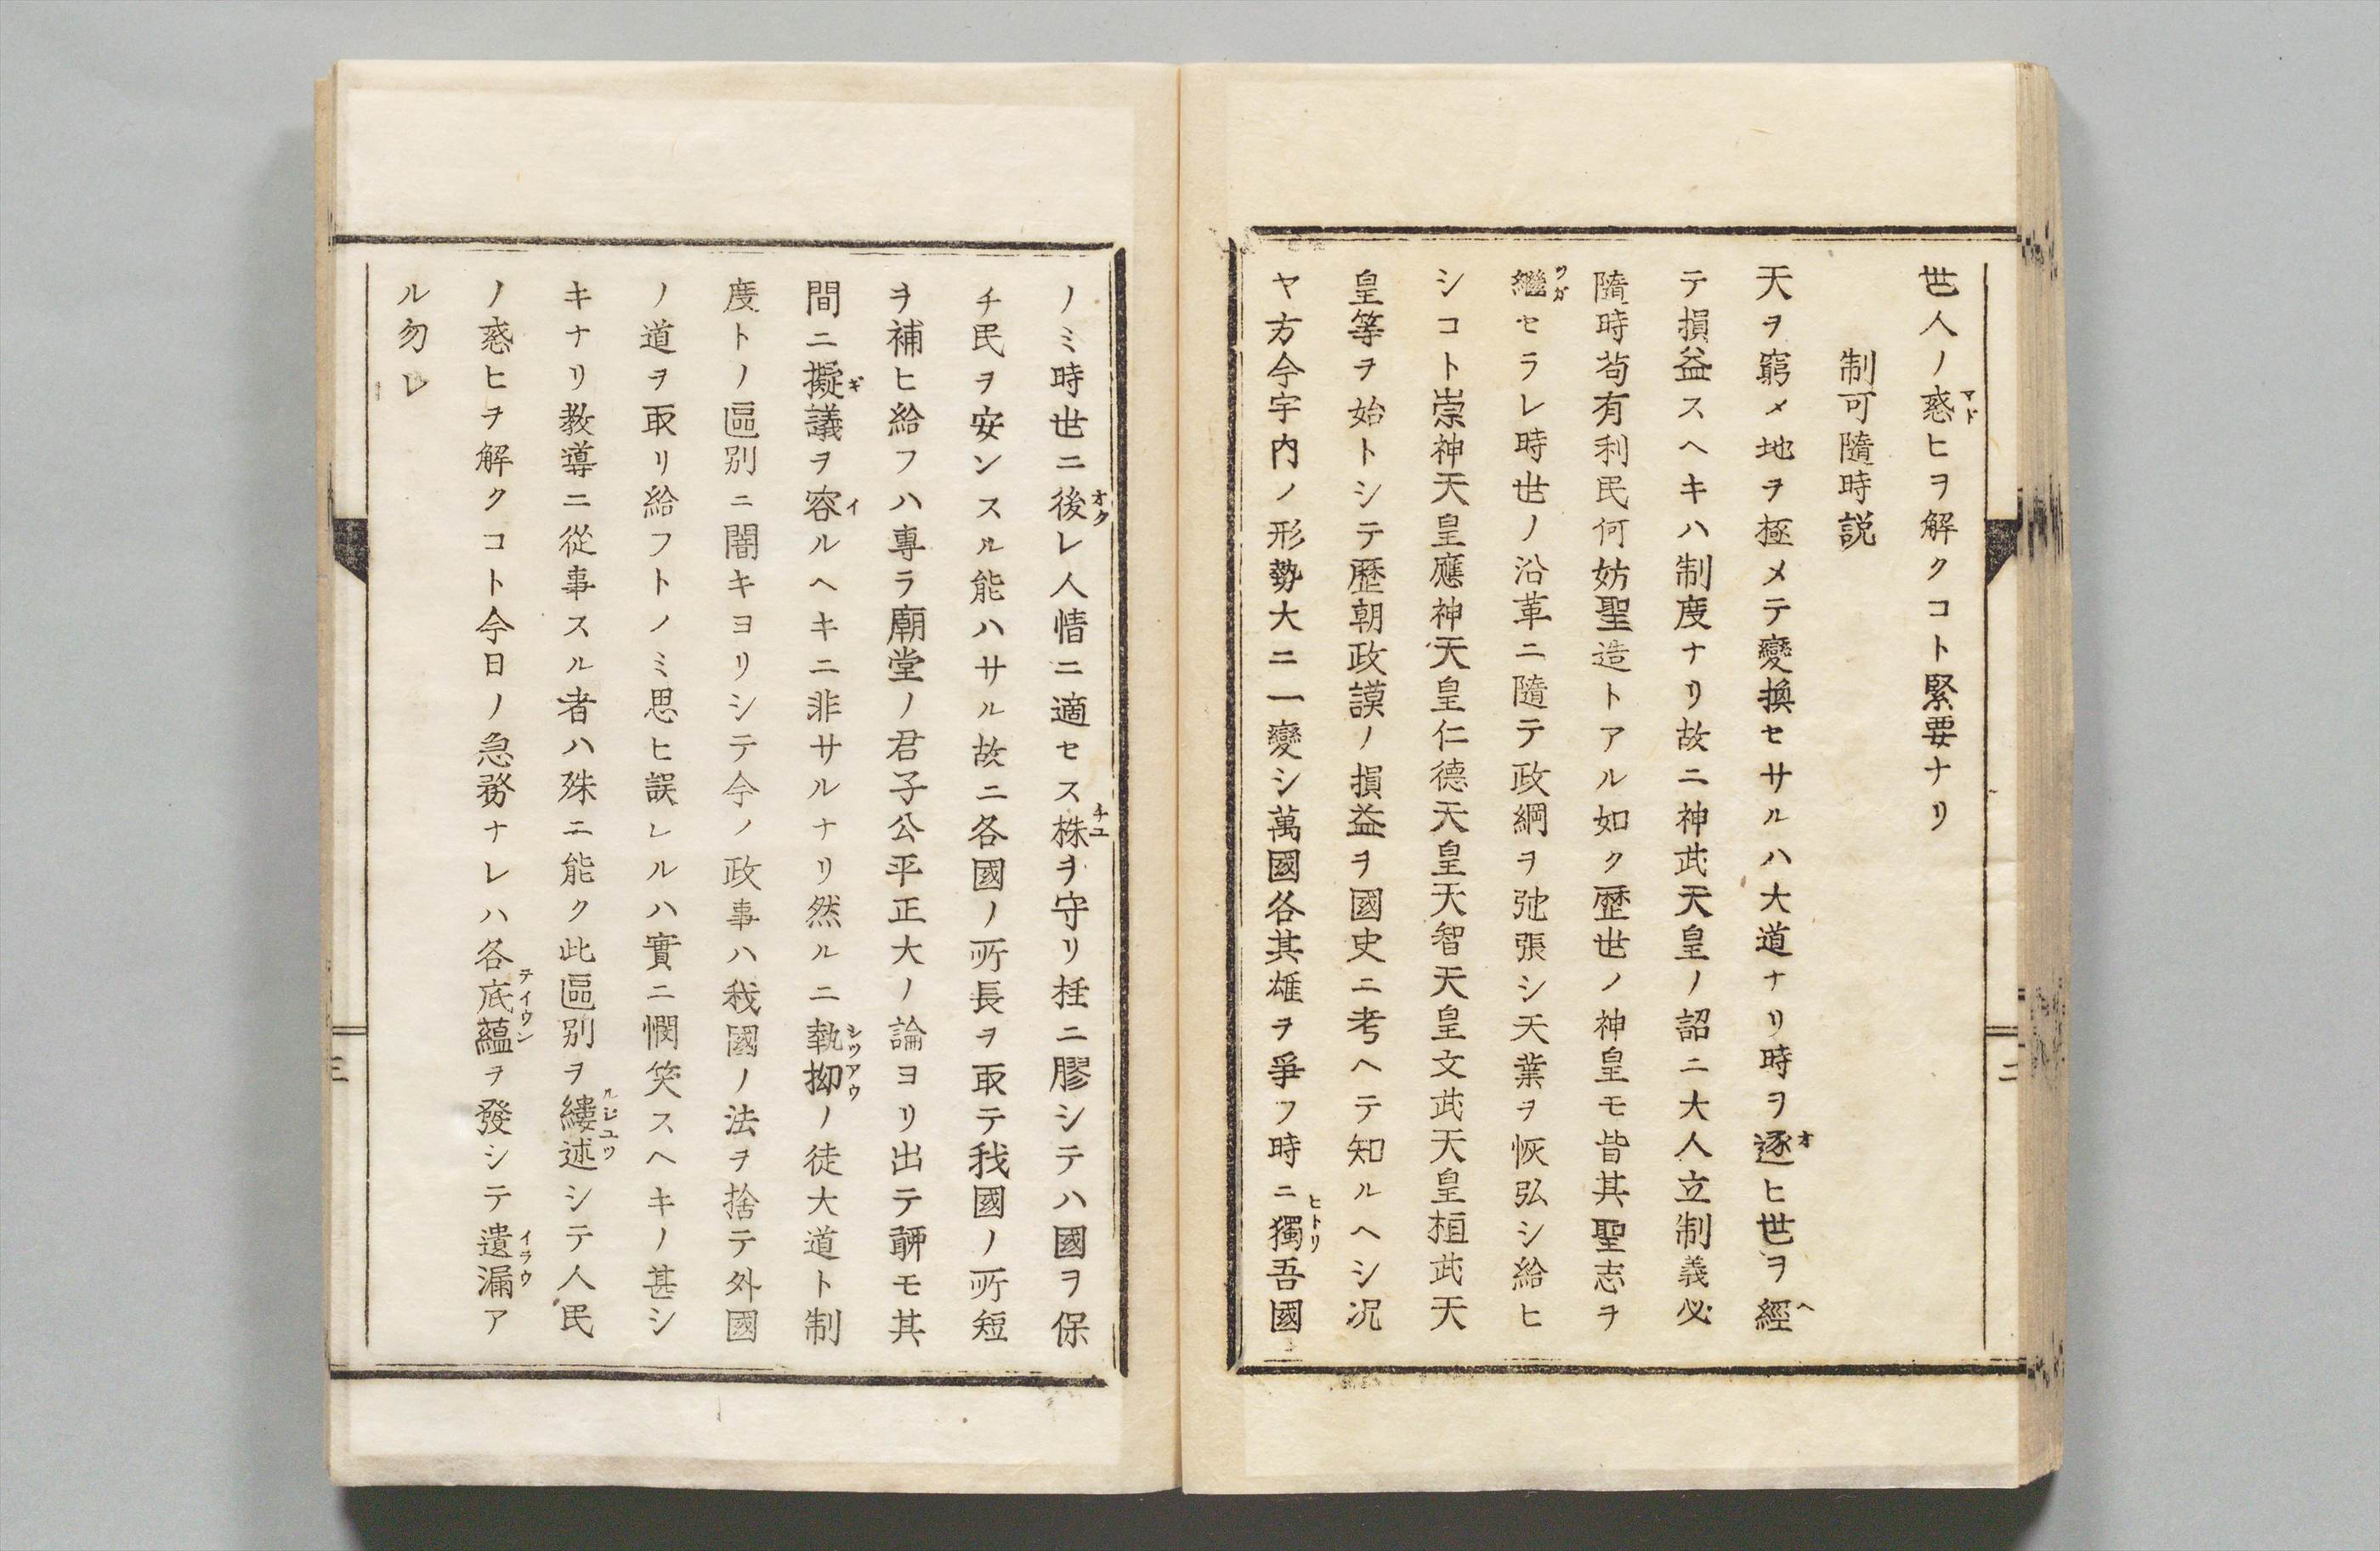 世人ノ惑ヒヲ解クコト緊要ナリ
制可隨時説
天ヲ窮メ地ヲ極メテ變換セサルハ大道ナリ時ヲ逐ヒ世ヲ經
テ損益スヘキハ制度ナリ故ニ神武天皇ノ詔ニ大人立制義必
隨時苟有利民何妨聖造トアル如ク歷世ノ神皇モ皆其聖志ヲ
繼セラレ時世ノ沿革ニ隨テ政綱ヲ弛張シ天業ヲ恢弘シ給ヒ
シコト崇神天皇應神天皇仁德天皇天智天皇文武天皇桓武天
皇等ヲ始トシテ歷朝政謨ノ損益ヲ國史ニ考ヘテ知ルヘシ况
ヤ方今宇内ノ形勢大ニ一變シ萬國各其雄ヲ爭フ時ニ獨吾國
ノミ時世ニ後レ人情ニ適セス株ヲ守リ柱ニ膠シテハ國ヲ保
チ民ヲ安ンスル能ハサル故ニ各國ノ所長ヲ取テ我國ノ所短
ヲ補ヒ給フハ專ラ廟堂ノ君子公平正大ノ論ヨリ出テ聊モ其
間ニ擬議ヲ容ルヘキニ非サルナリ然ルニ執拗ノ徒大道ト制
度トノ區別ニ闇キヨリシテ今ノ政事ハ我國ノ法ヲ捨テ外國
ノ道ヲ取リ給フトノミ思ヒ誤レルハ實ニ憫笑スヘキノ甚シ
キナリ教導ニ從事スル者ハ殊ニ能ク此區別ヲ縷述シテ人民
ノ惑ヒヲ解クコト今日ノ急務ナレハ各底蘊ヲ發シテ遺漏ア
ル勿レ